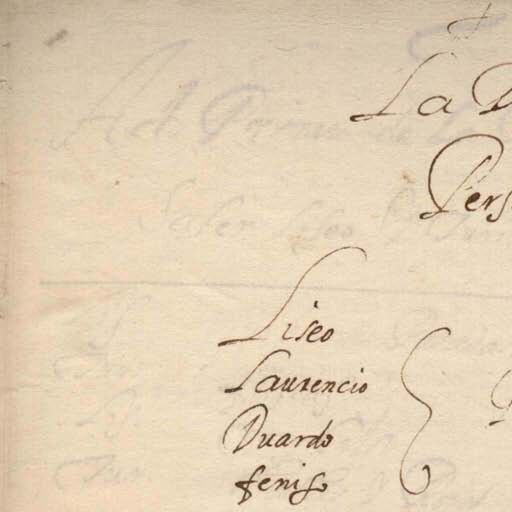 La D
Pers
Liseo
Laurencio
Duardo
feniso